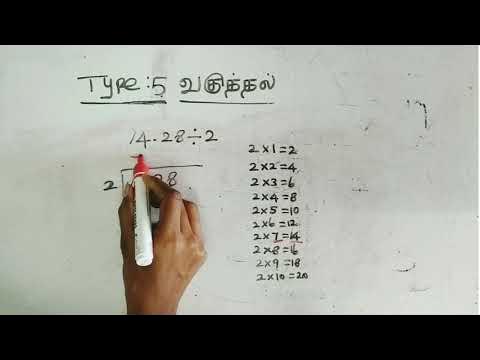 Type: 5 வகுத்தல்
14.28÷2
2 28
2×1=2
2×2=4
2×3=6
2×4=8
2×5=10
2×6=12
2×7=14
2×8=16
2×9=18
2×10=20